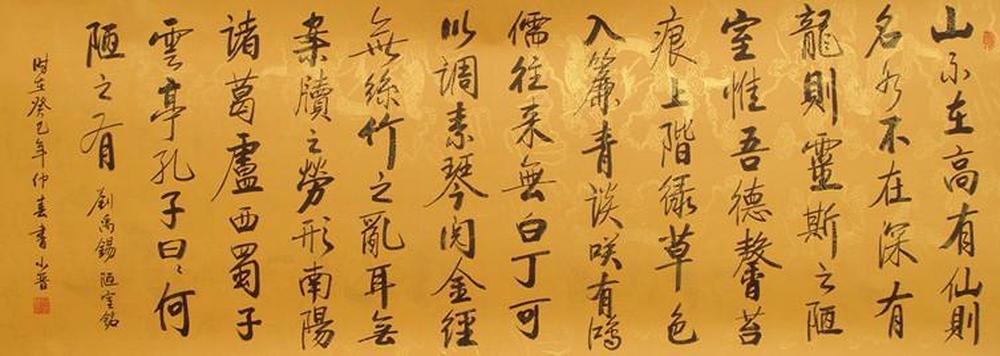 山不在高有仙則
名水不在深有
龍則靈斯之陋
室惟吾德馨苔
痕上階緑草色
入簾青談咲有鴻
儒往来無白丁可
以調素琴閲金經
無絲竹之亂耳無
案牘之勞形南陽
諸葛盧西蜀子
雲亭孔子曰何
陋之有 劉禹錫 陋室銘
时在癸巳年仲春書